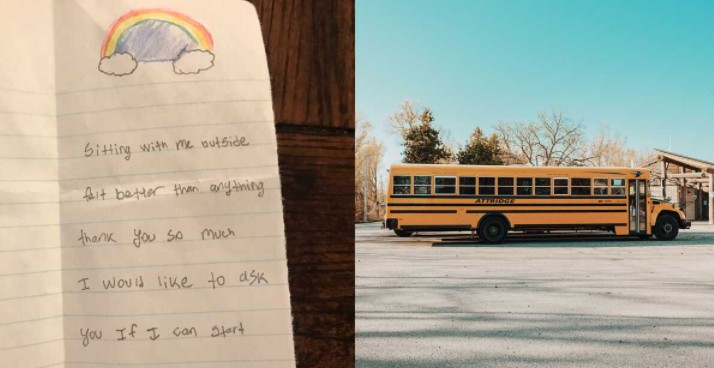 Sitting with me outside
felt better than anything
thank you so much
I would like to ask
you If I can start
ATTRIDGE